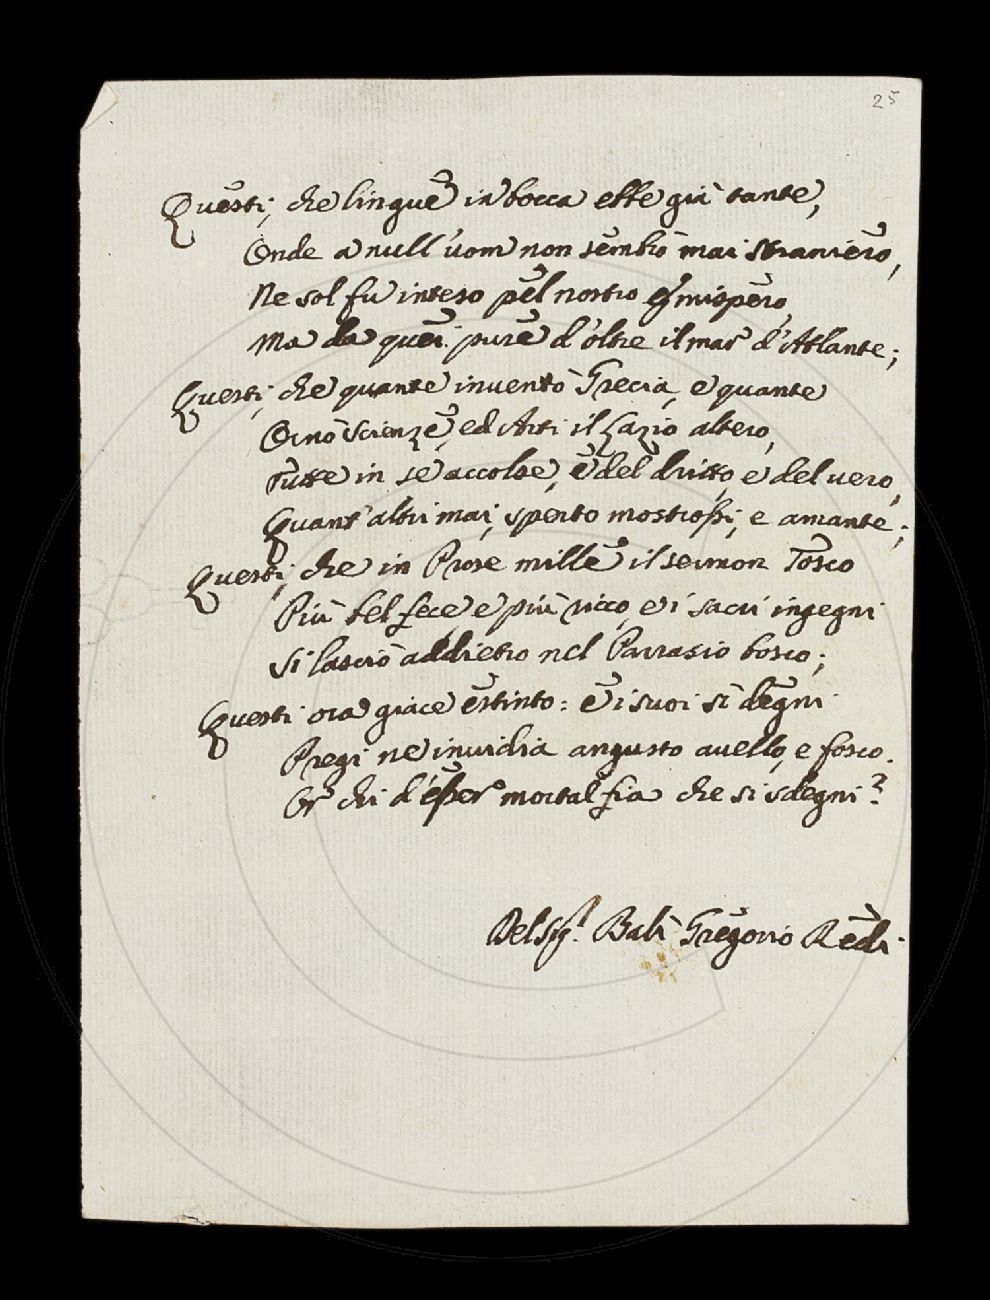 25
Questi, che lingue in bocca ebbe già tante,
Onde a null'uom non sembrò mai straniero,
Ne sol fu inteso pel nostro Emispero,
Ma da quei pure d'oltre il mar d'Atlante;
Questi, che quante inventò Grecia, e quante
Ornò Scienze, ed Arti il Lazio altero,
Tutte in sè accolse, e del dritto, e del vero,
Quant'altri mai, sperto mostrossi, e amante;
Questi, che in Prose mille il sermon Tosco
Più bel fece, e più ricco, e i sacri ingegni
Si lasciò addietro nel Parrasio bosco;
Questi ora giace estinto: e i suoi sì degni
Pregi ne invidia angusto avello, e fosco.
Or chi d'esser mortal fia che si sdegni?
Del Sig.r Balì Gregorio Redi.